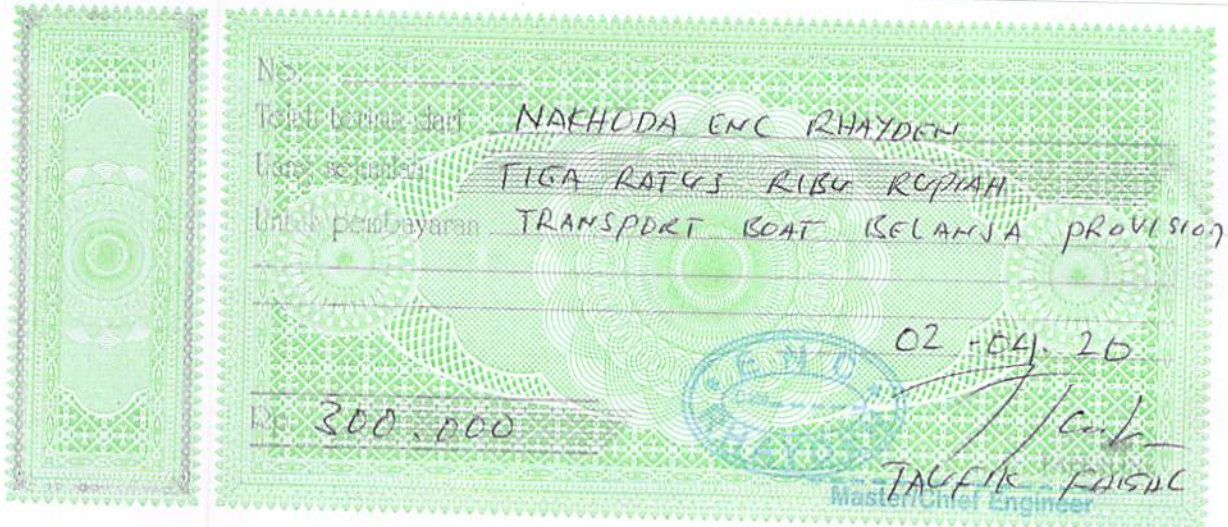 No.
Telah terima dari NAKHODA ENC RHAYDEN
Uang sejumlah TIGA RATUS RIBU RUPIAH
Untuk pembayaran TRANSPORT BOAT BELANJA PROVISION
02-04-20
ENC
RHAYDEN
Rp. 300.000
TAUFIK FAISAL
Master/Chief Engineer